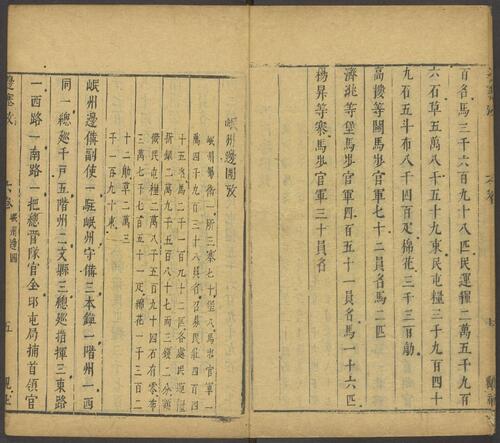 百名馬三千六百九十八匹民運糧二萬五千九百
六石草五萬八千五十九束民屯糧三千九百四十
九石五斗布八千四百疋棉花三千三百觔
高樓等關馬步官軍七十二員名馬二匹
濟洮等堡馬步官軍四百五十一員名馬一十六匹
楊昇等寨馬步官軍三十員名
岷州邊圖攷
岷州屬衛一所三寨七十堡八馬步官軍一
萬四千九百三十八員名召募民壯四百四
十五名馬二千一百九十二匹各處民運糧
折銀二萬九千五百八十七兩三錢二分
民屯糧二萬八千五百九十四石有零布
三萬七千七百五十一疋棉花一千三百二
十二觔草二萬三
千一百九十束
岷州邊備副使一駐岷州守備三本鎮一階州一西
同一總巡千戶五階州二文縣三總巡指揮三東路
一西路一南路一把總督隊官全部屯局捕首領官
邊塞攷
六卷
岷州邊圖
五